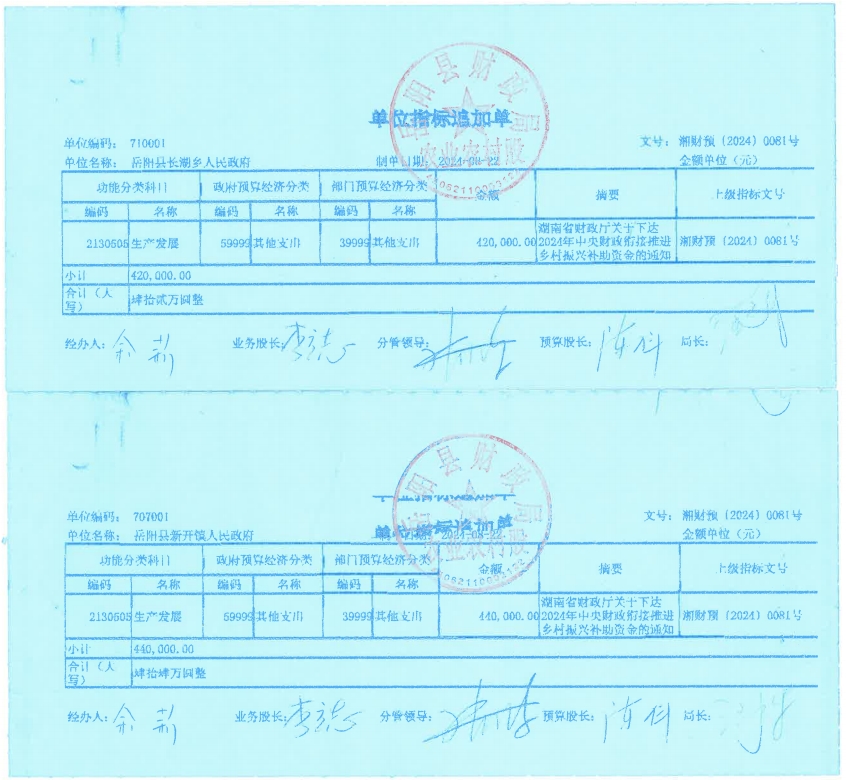 岳阳县财政局
农业农村股
单位指标追加单
单位编码： 710001
文号： 湘财预（2024）0081号
单位名称： 岳阳县长湖乡人民政府
制单日期：2024-08-22
金额单位（元）
功能分类科目 政府预算经济分类 部门预算经济分类 金额 摘要 上级指标文号
编码 名称 编码 名称 编码 名称
2130505 生产发展 59999 其他支出 39999 其他支出 420,000.00 湖南省财政厅关于下达2024年中央财政衔接推进乡村振兴补助资金的通知 湘财预（2024）0081号
小计 420,000.00
合计（大写） 肆拾贰万圆整
经办人： 业务股长： 分管领导： 预算股长： 局长：
岳阳县财政局
农业农村股
单位指标追加单
单位编码： 707001
文号： 湘财预（2024）0081号
单位名称： 岳阳县新开镇人民政府
2024-08-22
金额单位（元）
功能分类科目 政府预算经济分类 部门预算经济分类 金额 摘要 上级指标文号
编码 名称 编码 名称 编码 名称
2130505 生产发展 59999 其他支出 39999 其他支出 440,000.00 湖南省财政厅关于下达2024年中央财政衔接推进乡村振兴补助资金的通知 湘财预（2024）0081号
小计 440,000.00
合计（大写） 肆拾肆万圆整
经办人： 业务股长： 分管领导： 预算股长： 局长：